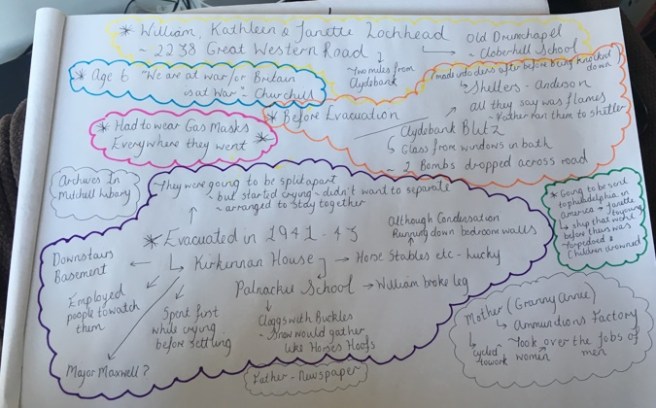 * William, Kathleen & Janette Lochhead
- 2238 Great Western Road
Old Drumchapel
- Cloberhill School
- Two miles from
Clydebank
* Age 6 "We are at war/or Britain
is at War" - Churchill
made into dens after before being knocked
down
Shelters - Anderson
all they say was flames
- Father ran them to shelter
* Before Evacuation
Clydebank Blitz
Glass from windows in bath
- 2 Bombs dropped across road
* Had to wear Gas Masks
Everywhere they went *
Archives In
Mitchell Library
They were going to be split apart
- but started crying - didn't want to separate
- arranged to stay together
* Evacuated in 1941-43
Although Condensation
Running down bedroom walls
Kirkennan House
Horse Stables etc - lucky
Downstairs
Basement
Employed
people to watch
them
Spent first
while crying
before settling
Major Maxwell?
Palnackie School
William broke leg
Cloggs with Buckles
- Snow would gather
like Horses Hoofs
* Going to be sent
to philadelphia in
America - Janette
ship that went
before them was
torpedoed &
Children drowned
Mother (Granny Annie)
Ammundions Factory
- Took over the Jobs of
men
"cycled"
to work
women
Father - Newspaper